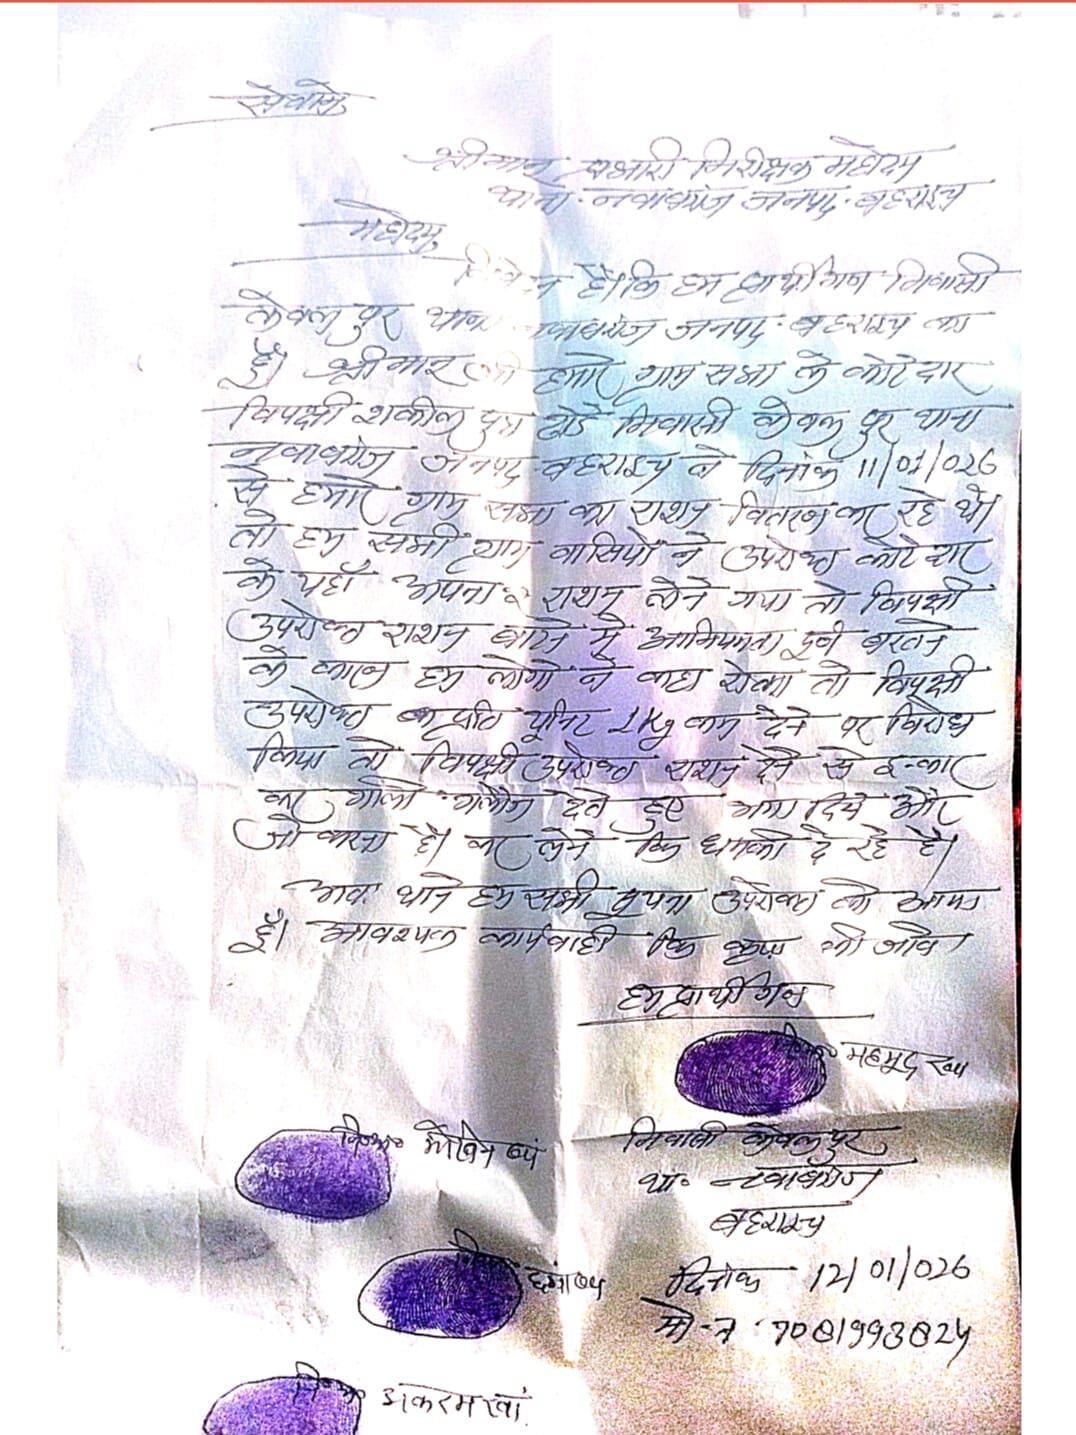 सेवामे,
श्रीमान प्रभारी निरीक्षक महोदय
थाना - नवाबगंज जनपद - बहराइच
महोदय,
निवेदन है। कि हम प्रार्थीगण निवासी
केवलपुर थाना नवाबगंज जनपद - बहराइच का
हूँ। श्रीमान जी हमारे ग्राम सभा के कोटेदार
विपक्षी शकील पुत्र निवासी केवलपुर थाना
नवाबगंज जनपद - बहराइच ने दिनांक 11/01/026
से हमारे ग्राम सभा का राशन वितरण कर रहे थे।
तो हम सभी ग्राम वासियों ने उपरोक्त कोटेदार
के यहाँ अपना २ राशन लेने गया तो विपक्षी
उपरोक्त राशन बाटने मे अनियमता पूर्ण बरतने
के कारण हम लोगो ने कहा रोका तो विपक्षी
उपरोक्त प्रति यूनिट 1 Kg कम देने पर विरोध
किया तो विपक्षी उपरोक्त राशन देने से इन्कार
कर गाली - गलौज देते हुए भगा दिये और
जो करना है। कर लेने कि धमकी दे रहे है।
अतः थाने हम सभी सूचना उपरोक्त को आया
हूँ। आवश्यक कार्यवाही कि कृपा की जाये
हम प्रार्थी गण
महमूद खां
निवासी केवलपुर
था॰ नवाबगंज
बहराइच
दिनांक 12/01/026
मो - न - 7081993824
अकरम खां